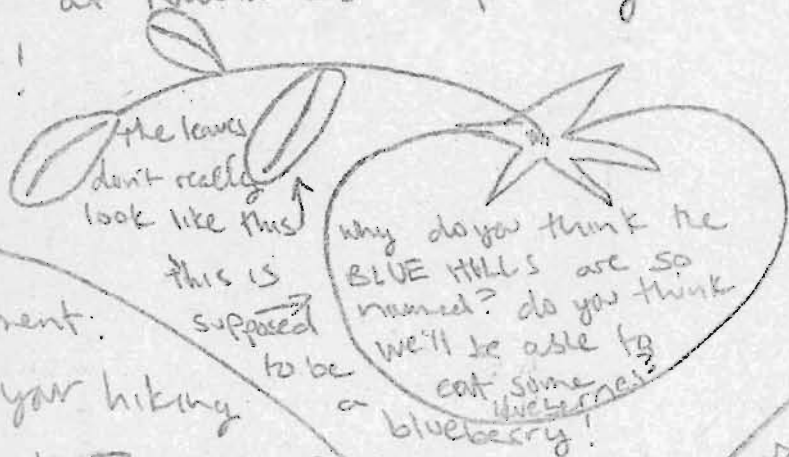 !
the leaves
don't really
look like this
this is
supposed
to be
a
blueberry!
why do you think the
BLUE HILLS are so
named? do you think
we'll be able to
eat some
blueberries?
your hiking